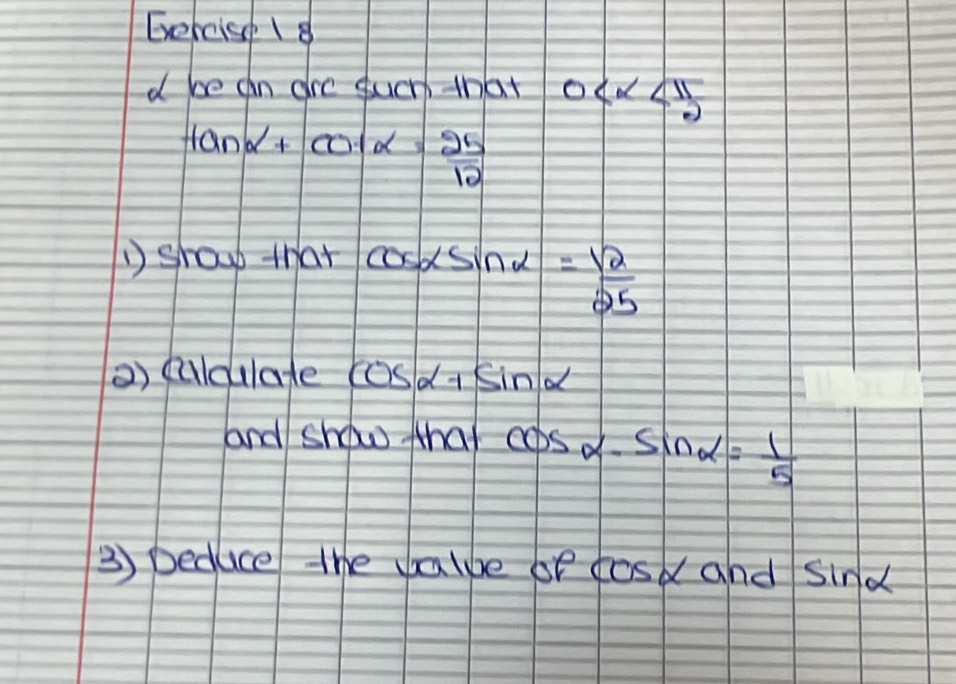 Exercise 18
α be an arc such that 0<α<π/2
tanα + cotα = 25/12
1) show that cosα sinα = 12/25
2) Calculate cosα + sinα
and show that cosα - sinα = 1/5
3) Deduce the value of cosα and sinα